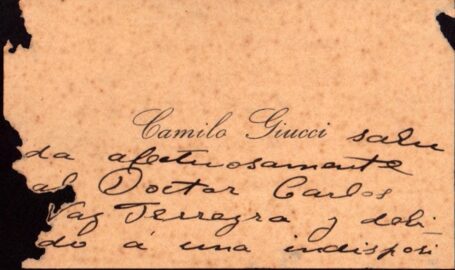 Camilo Giucci salu
da afectuosamente
al Doctor Carlos
Vaz Ferreyra y debi
do á una indisposi